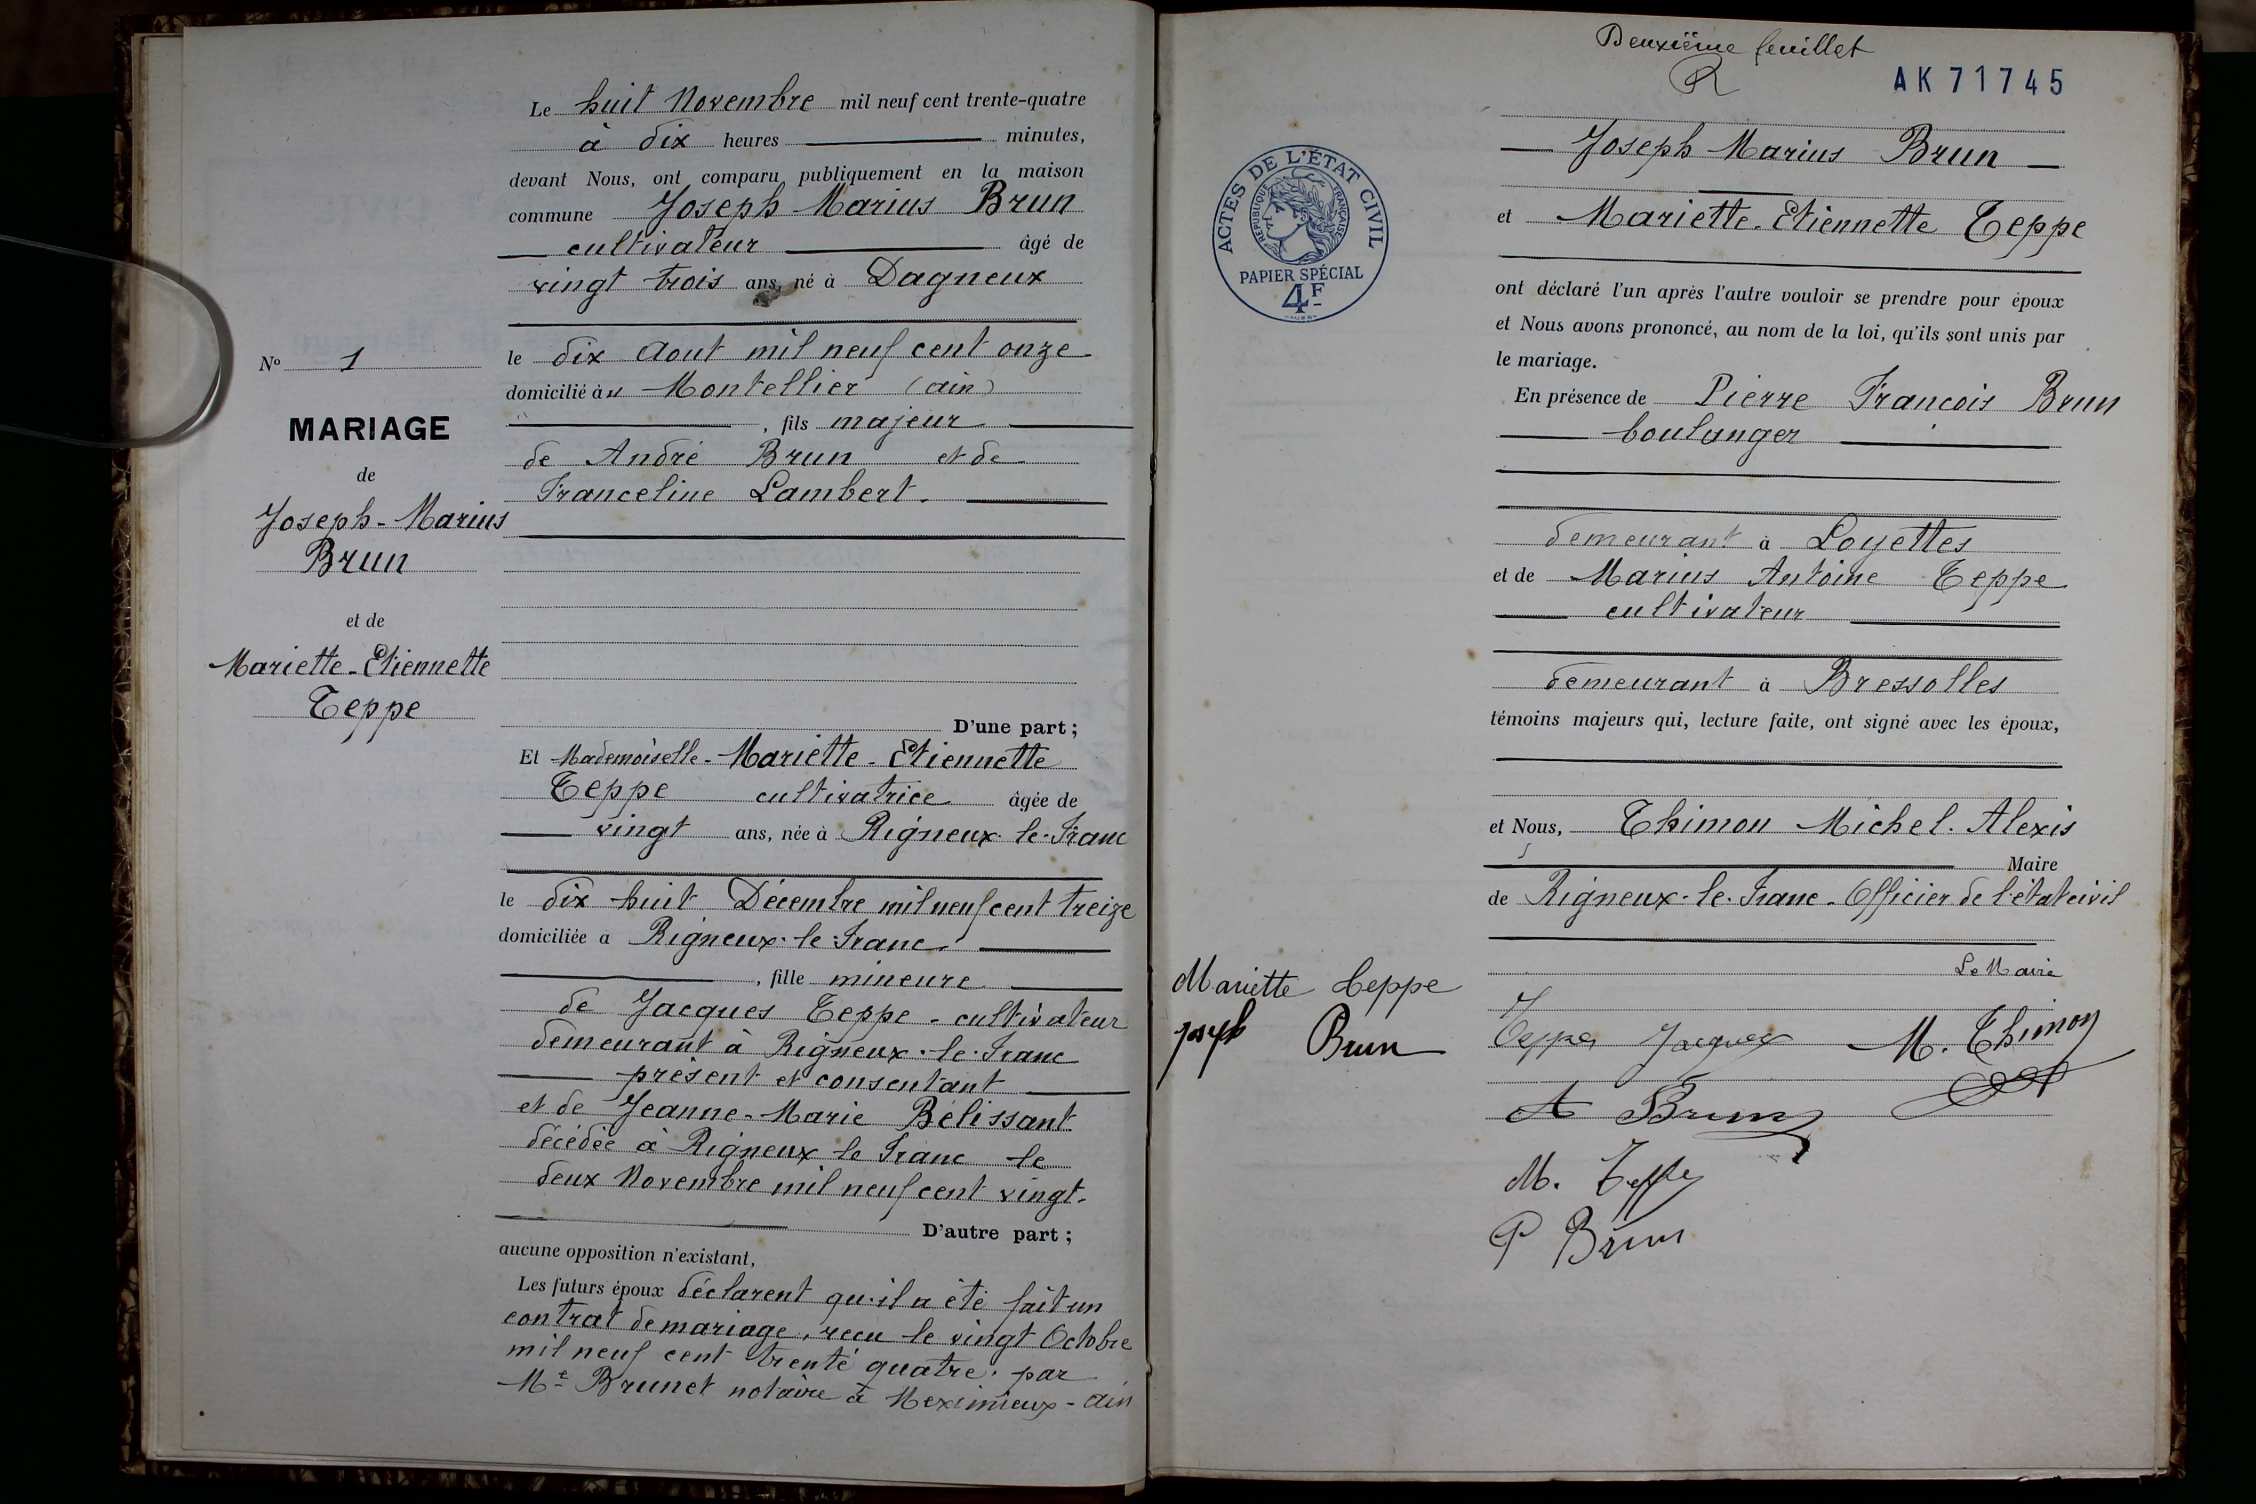 Le huit Novembre mil neuf cent trente-quatre
à dix heures minutes,
devant Nous, ont comparu publiquement en la maison
commune Joseph Marius Brun
cultivateur âgé de
vingt trois ans, né à Dagneux
le dix Aout mil neuf cent onze
domicilié à Montellier (ain)
, fils majeur
de André Brun et de
Franceline Lambert.
D'une part ;
Et Mademoiselle - Mariette - Etiennette
Teppe cultivatrice âgée de
vingt ans, née à Rigneux-le-Franc
le dix huit Décembre mil neuf cent treize
domiciliée à Rigneux-le-Franc
, fille mineure
de Jacques Teppe - cultivateur
demeurant à Rigneux-le-Franc
présent et consentant
et de Jeanne-Marie Bélissant
décédée à Rigneux le Franc le
deux Novembre mil neuf cent vingt-
D'autre part ;
aucune opposition n'existant,
Les futurs époux déclarent qu'il a été fait un
contrat de mariage, recu le vingt Octobre
mil neuf cent trente quatre. par
Me Brunet notaire à Meximieux - ain
No 1
MARIAGE
de
Joseph-Marius
Brun
et de
Mariette-Etiennette
Teppe
Deuxième feuillet
AK 71745
ACTES DE L'ÉTAT CIVIL
RÉPUBLIQUE FRANÇAISE
PAPIER SPÉCIAL
4F
Joseph Marius Brun
et Mariette-Etiennette Teppe
ont déclaré l'un après l'autre vouloir se prendre pour époux
et Nous avons prononcé, au nom de la loi, qu'ils sont unis par
le mariage.
En présence de Pierre Francois Brun
boulanger
demeurant à Loyettes
et de Marius Antoine Teppe
cultivateur
demeurant à Bressolles
témoins majeurs qui, lecture faite, ont signé avec les époux,
et Nous, Thimon Michel. Alexis
Maire
de Rigneux-le-Franc - Officier de l'état civil
Le Maire
Mariette Teppe
Joseph Brun
Teppe Jacques M. Thimon
A Brun
M. Teppe
P Brun